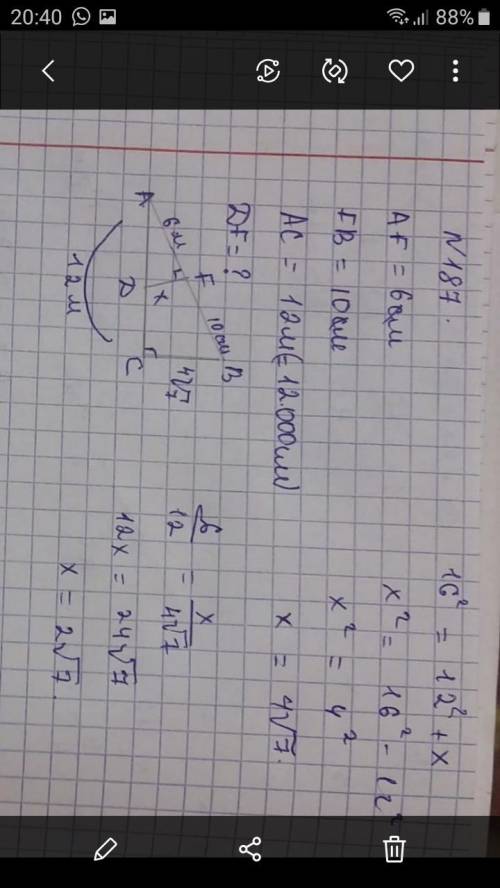 20:40 88%
N 187.
AF = 6см
FB = 10см
AC = 12м(=12.000см)
DF = ?
A
6м
F
10см
B
D
x
C
4√7
12м
16² = 12² + x
x² = 16² - 12²
x² = 4²
x = 4√7.
6/12 = x/4√7
12x = 24√7
x = 2√7.